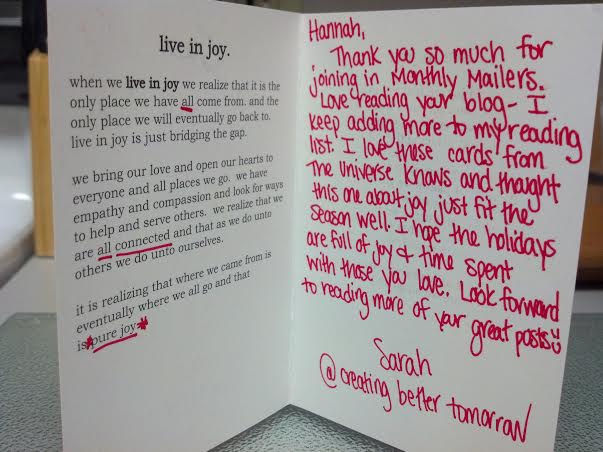 live in joy.
when we live in joy we realize that it is the
only place we have all come from. and the
only place we will eventually go back to.
live in joy is just bridging the gap.
we bring our love and open our hearts to
everyone and all places we go. we have
empathy and compassion and look for ways
to help and serve others. we realize that we
are all connected and that as we do unto
others we do unto ourselves.
it is realizing that where we came from is
eventually where we all go and that
is pure joy
Hannah,
Thank you so much for
joining in Monthly Mailers.
Love reading your blog - I
keep adding more to my reading
list. I love these cards from
The Universe Knows and thought
this one about joy just fit the
season well. I hope the holidays
are full of joy & time spent
with those you love. Look forward
to reading more of your great posts
Sarah
@creating better tomorrow